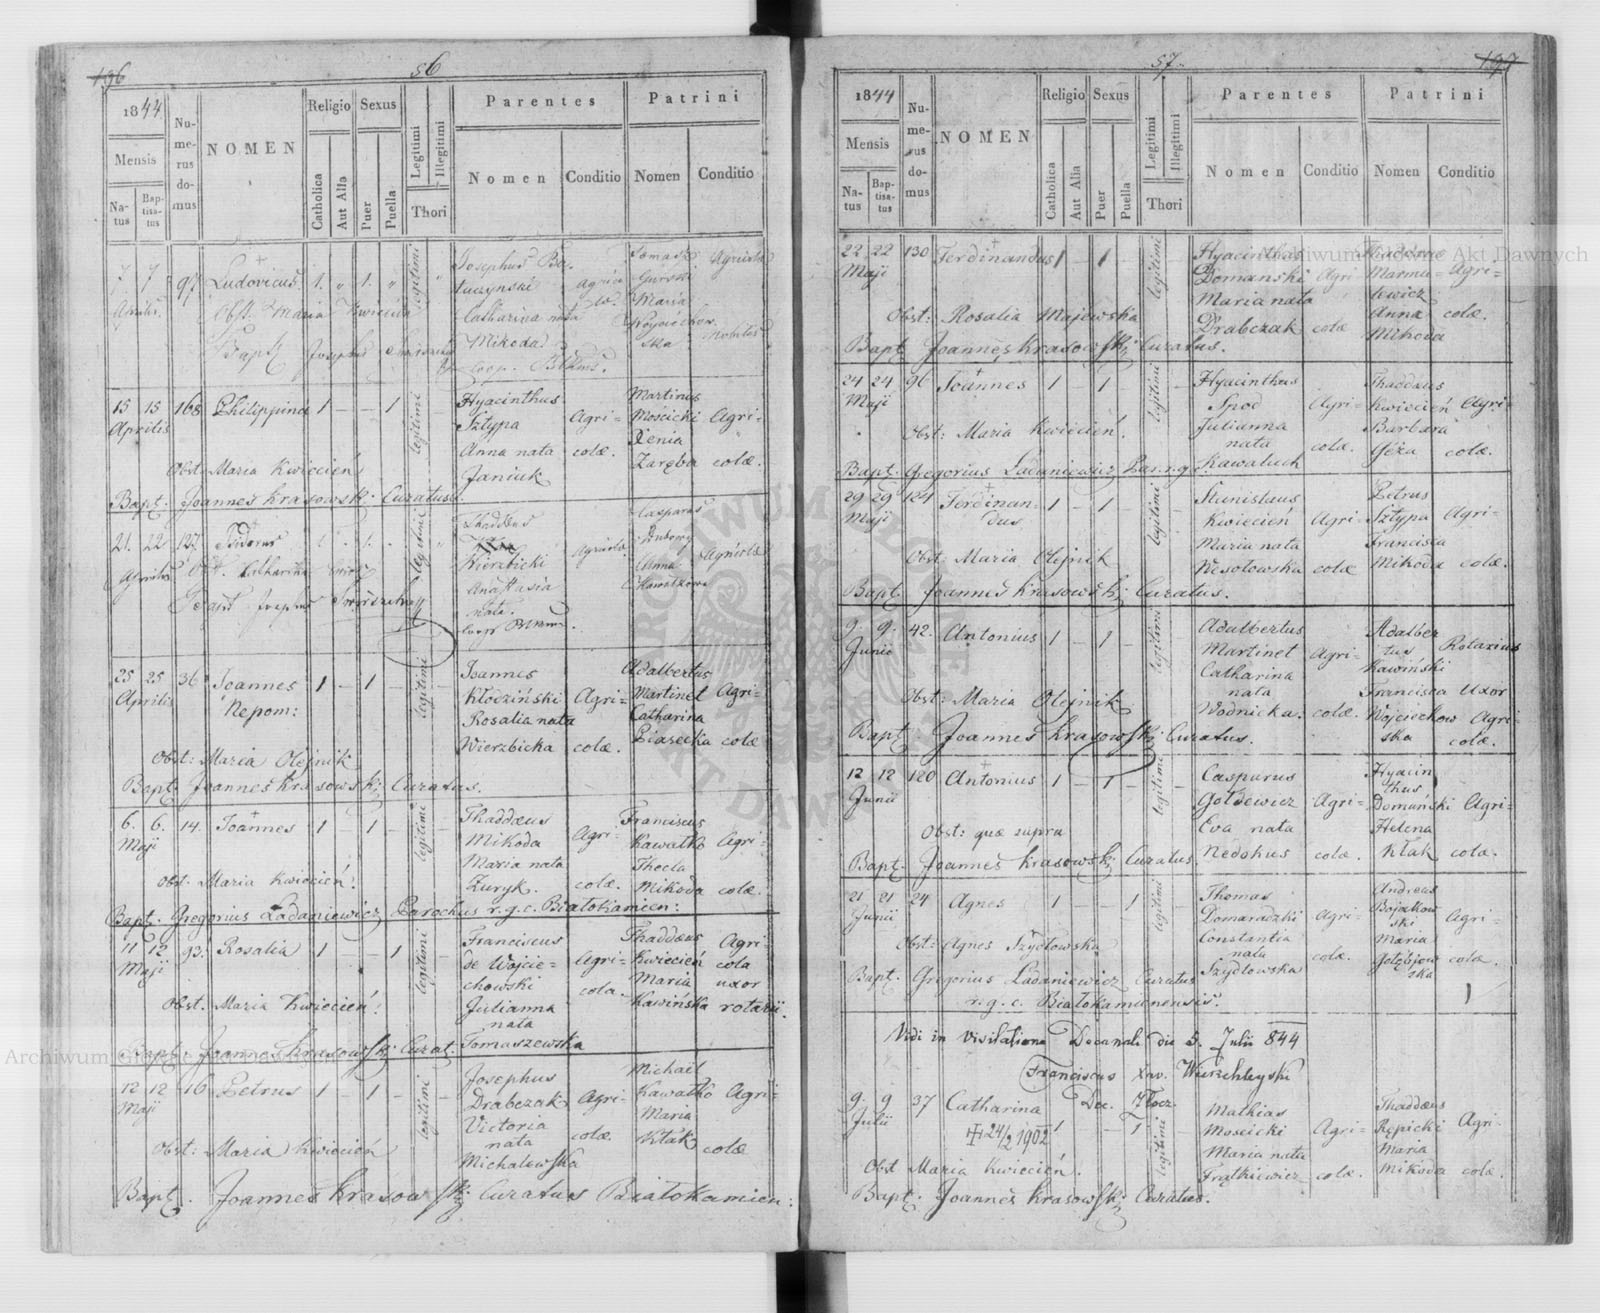 196
56
1844
Mensis
Natus
Baptisatus
Numerus domus
NOMEN
Religio
Catholica
Aut Alia
Sexus
Puer
Puella
Legitimi
Illegitimi
Thori
Parentes
Nomen
Conditio
Patrini
Nomen
Conditio
7 7 97 Ludovicus 1. " 1. " legitimi "
Aprilis
Josephus
tuczynski
Catharina nata
Mikoda
Tomasz
Gurski
Maria
Obst. Maria Kwiecien
Bapt Josephus
15 15 168 Philippina 1 – – 1 legitimi –
Aprilis
Hyacinthus
Sztypa Agri=
Anna nata colæ.
Janiuk
Martinus
Mościcki Agri-
Xenia
Zaręba colæ.
Obst: Maria Kwiecień
Bapt. Joannes Krasowski Curatus.
21. 22 127 Isidorus 1. 1. legitimi
Aprilis
Thaddeus
Wierzbicki Agricola
Anastasia
nata.
Casparus
Anna Agricola
Obst. Catharina
Bapt. Josephus
25 25 36 Joannes 1 – 1 – legitimi –
Aprilis
Nepom:
Joannes
Kłodziński Agri=
Rosalia nata
Wierzbicka colæ.
Adalbertus
Martinet Agri-
Catharina
Piasecka colæ
Obst: Maria Olejnik
Bapt Joannes Krasowski Curatus.
6. 6. 14. Joannes 1 – 1 – legitimi –
Maji
Thaddæus
Mikoda Agri-
Maria nata
Zuryk. colæ.
Franciscus
Kawałko Agri-
Thecla
Mikoda colæ.
obst. Maria Kwiecień.
Bapt. Gregorius Ladaniewicz Parochus r.g.c. Białokamien:
11 12 93. Rosalia 1 – – 1 legitimi –
Maji
Franciscus
de Wojcie= Agri=
chowski cola
Julianna
nata
Tomaszewska
Thaddæus Agri
Kwiecień cola
Maria uxor
Kawińska rotarii.
Obst. Maria Kwiecień.
Bapt. Joannes Krasowski Curat.
12 12 16 Petrus 1 – 1 – legitimi –
Maji
Josephus
Drabczak Agri-
Victoria
nata colæ.
Michalewska
Michaël
Kawałko Agri-
Maria
Kłak colæ
obst: Maria Kwiecień
Bapt. Joannes Krasowski Curatus Białokamien:
57.
197
1844
Mensis
Natus
Baptisatus
Numerus domus
NOMEN
Religio
Catholica
Aut Alia
Sexus
Puer
Puella
Legitimi
Illegitimi
Thori
Parentes
Nomen
Conditio
Patrini
Nomen
Conditio
22 22 130 Ferdinandus 1 – 1 – legitimi –
Maji
Hyacinthus
Domanski Agri
Maria nata
Drabczak colæ
Marmu= Agri-
lewicz
Anna colæ.
Mikoda
Obst: Rosalia Majewska
Bapt Joannes Krasowski Curatus.
24 24 96 Joannes 1 – 1 – legitimi –
Maji
Hyacinthus
Spod Agri-
Julianna
nata colæ.
Kawaluch
Thaddæus
Kwiecień Agri-
Barbara
Géza colæ.
Obst: Maria Kwiecień.
Bapt. Gregorius Ladaniewicz Par. r.g.
29 29 124 Ferdinan- 1 – 1 – legitimi –
Maji dus
Stanislaus
Kwiecień Agri-
Maria nata
Wesołowska colæ
Petrus
Sztypa Agri-
Francisca
Mikoda colæ.
Obst: Maria Olejnik
Bapt. Joannes Krasowski Curatus.
9. 9. 42. Antonius 1 – 1 – legitimi –
Junii
Adalbertus
Martinet Agri-
Catharina
nata
Wodnicka. colæ.
Adalber
tus Rotarius
Kawiński
Francisca uxor
Wojciechow Agri-
ska colæ.
Obst: Maria Olejnik
Bapt. Joannes Krasowski Curatus.
12 12 120 Antonius 1 – 1 – legitimi –
Junii
Casparus
Gołdewicz Agri-
Eva nata
Nedohus colæ.
Hyacin
thus
Domański Agri=
Helena
Kłak colæ.
Obst: quæ supra
Bapt. Joannes Krasowski Curatus
21 21 24 Agnes 1 – – 1 legitimi –
Junii
Thomas
Domaradzki Agri-
Constantia
nata colæ.
Szydłowska
Andreas
Bojałkow
ski Agri-
Maria
Gołębiow colæ.
ska
Obst: Agnes Szydłowska
Bapt. Gregorius Ladaniewicz Curatus
r.g.c. Białokamenensis.
Vidi in visitatione Decanali die 5. Julii 844
Franciscus Xav. Wierzchleyski
Dec. Złocz.
9. 9 37 Catharina 1 – – 1 legitimi
Julii
✝ 24/2 1902
Mathias
Moscicki Agri-
Maria nata
Frątkiewicz colæ.
Thaddæus
Rępicki Agri-
Maria
Mikoda colæ.
Obst Maria Kwiecień.
Bapt. Joannes Krasowski Curatus.
Archiwum Główne Akt Dawnych
ARCHIWUM GŁÓWNE AKT DAWNYCH